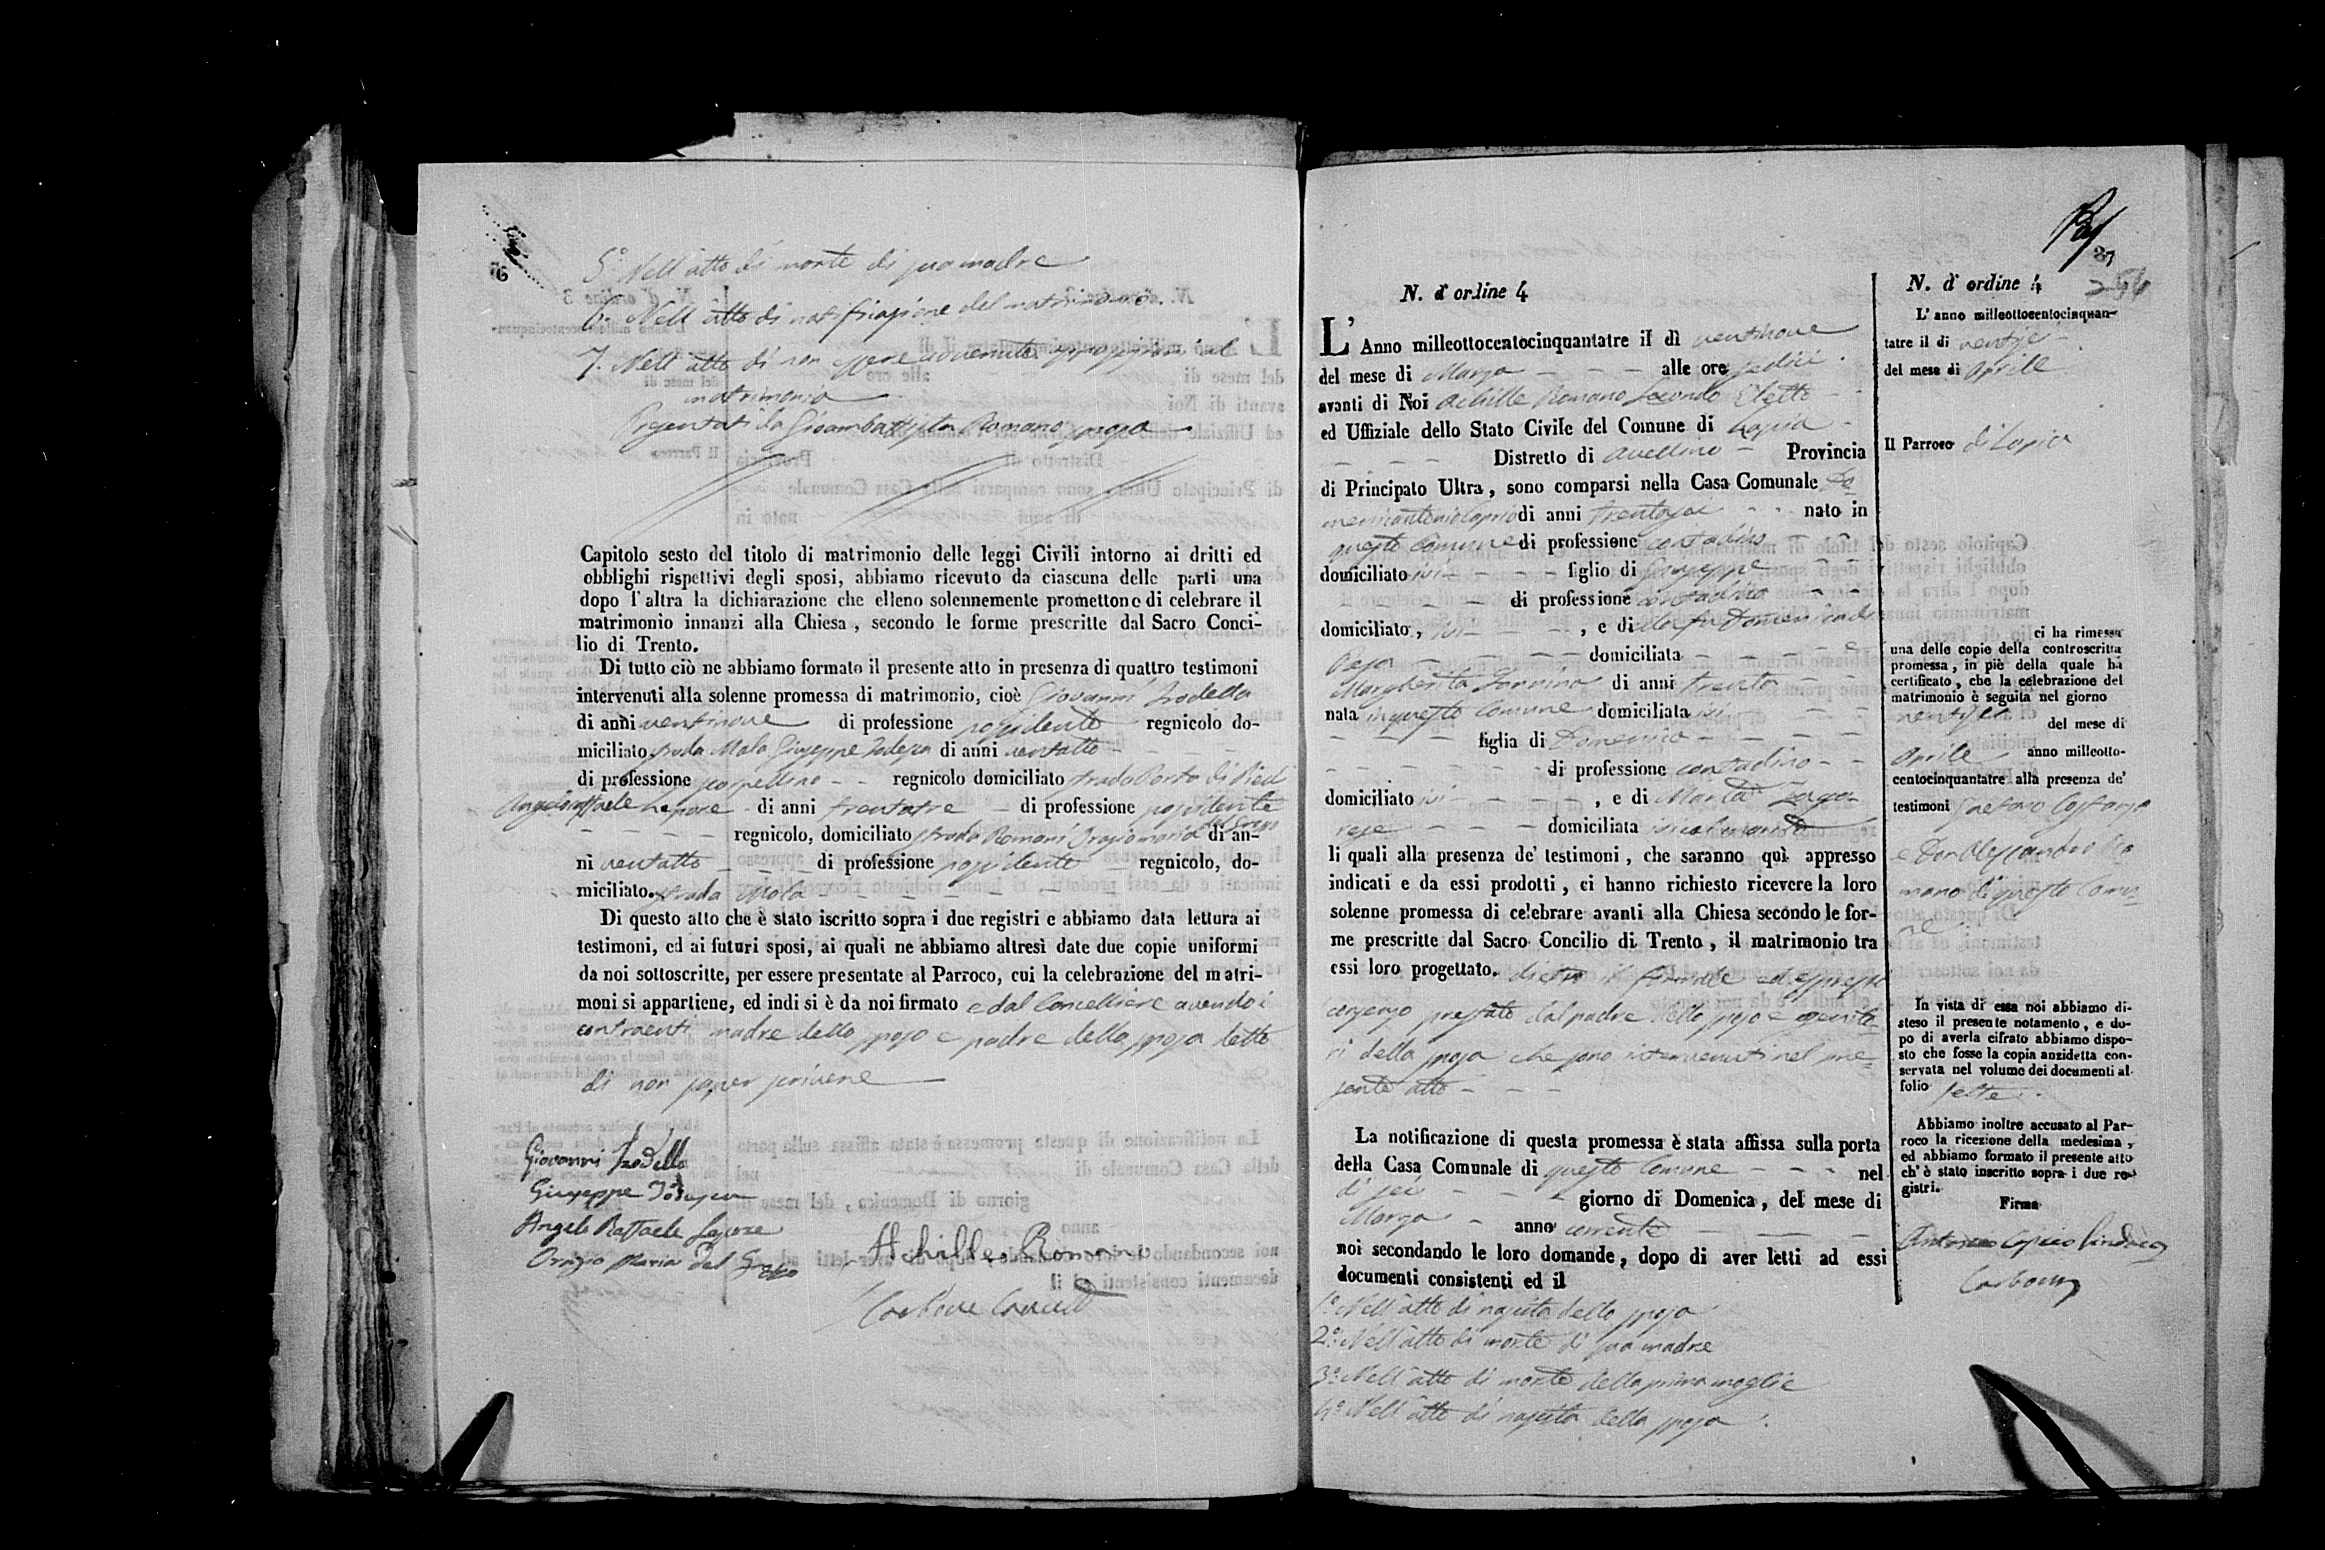 76
5.° Nell'atto di morte di sua madre
6.° Nell'atto di notificazione del matrimonio.
7. Nell'atto di non essere avvenuta opposizione al
matrimonio
Presentati da Gioambattista Romano
Capitolo sesto del titolo di matrimonio delle leggi Civili intorno ai dritti ed
obblighi rispettivi degli sposi, abbiamo ricevuto da ciascuna delle parti una
dopo l'altra la dichiarazione che elleno solennemente promettono di celebrare il
matrimonio innanzi alla Chiesa, secondo le forme prescritte dal Sacro Conci-
lio di Trento.
Di tutto ciò ne abbiamo formato il presente atto in presenza di quattro testimoni
intervenuti alla solenne promessa di matrimonio, cioè Giovanni IZodella
di anni ventinove di professione possidente regnicolo do-
miciliato strada Mala Giuseppe di anni ventotto
di professione scarpellino regnicolo domiciliato strada Porta di Piedi
Angeloraffaele Lepore di anni trentatre di professione possidente
regnicolo, domiciliato strada Romani Oraziomaria del Grosso di an-
ni ventotto di professione possidente regnicolo, do-
miciliato. strada Mola
Di questo atto che è stato iscritto sopra i due registri e abbiamo data lettura ai
testimoni, ed ai futuri sposi, ai quali ne abbiamo altresì date due copie uniformi
da noi sottoscritte, per essere presentate al Parroco, cui la celebrazione del matri-
moni si appartiene, ed indi si è da noi firmato e dal Cancelliere avendo i
contraenti madre dello sposo e padre della sposa detto
di non saper scrivere
Giovanni
Giuseppe
Angelo Raffaele Lepore
Orazio Maria Del Grosso
Achille Romano
Carbone
37
256
N. d'ordine 4
L'Anno milleottocentocinquantatre il dì ventinove
del mese di Marzo alle ore sedici
avanti di Noi Achille Romano Secondo Eletto
ed Uffiziale dello Stato Civile del Comune di Lapio
Distretto di Avellino Provincia
di Principato Ultra, sono comparsi nella Casa Comunale Do-
menicantonio Caprio di anni trentasei nato in
questo Comune di professione contadino
domiciliato ivi figlio di Giuseppe
di professione contadino
domiciliato, ivi, e di della fu Domenica di
domiciliata
Margherita di anni trenta
nata in questo Comune domiciliata ivi
figlia di Domenico
di professione contadino
domiciliato ivi, e di Maria
domiciliata
li quali alla presenza de' testimoni, che saranno quì appresso
indicati e da essi prodotti, ci hanno richiesto ricevere la loro
solenne promessa di celebrare avanti alla Chiesa secondo le for-
me prescritte dal Sacro Concilio di Trento, il matrimonio tra
essi loro progettato. dietro il formale ed espresso
consenso prestato dal padre dello sposo e genito-
ri della sposa che sono intervenuti nel pre-
sente atto
La notificazione di questa promessa è stata affissa sulla porta
della Casa Comunale di questo Comune nel
dì sei giorno di Domenica, del mese di
Marzo anno corrente
noi secondando le loro domande, dopo di aver letti ad essi
documenti consistenti ed il
1.° Nell'atto di nascita dello sposo
2.° Nell'atto di morte di sua madre
3.° Nell'atto di morte della prima moglie
4.° Nell'atto di nascita della sposa
N. d'ordine 4
L'anno milleottocentocinquan-
tatre il di ventisei
del mese di Aprile
Il Parroco di Lapio
ci ha rimessa
una delle copie della controscritta
promessa, in piè della quale ha
certificato, che la celebrazione del
matrimonio è seguita nel giorno
ventisei
del mese di
Aprile anno milleotto-
centocinquantatre alla presenza de'
testimoni Gaetano
e Don Alessandro Ro-
mano di questo Comu-
ne
In vista di essa noi abbiamo di-
steso il presente notamento, e do-
po di averla cifrato abbiamo dispo-
sto che fosse la copia anzidetta con-
servata nel volume dei documenti al
folio sette
Abbiamo inoltre accusato al Par-
roco la ricezione della medesima,
ed abbiamo formato il presente atto
ch'è stato inscritto sopra i due re-
gistri.
Firma
Sindaco
Carbone